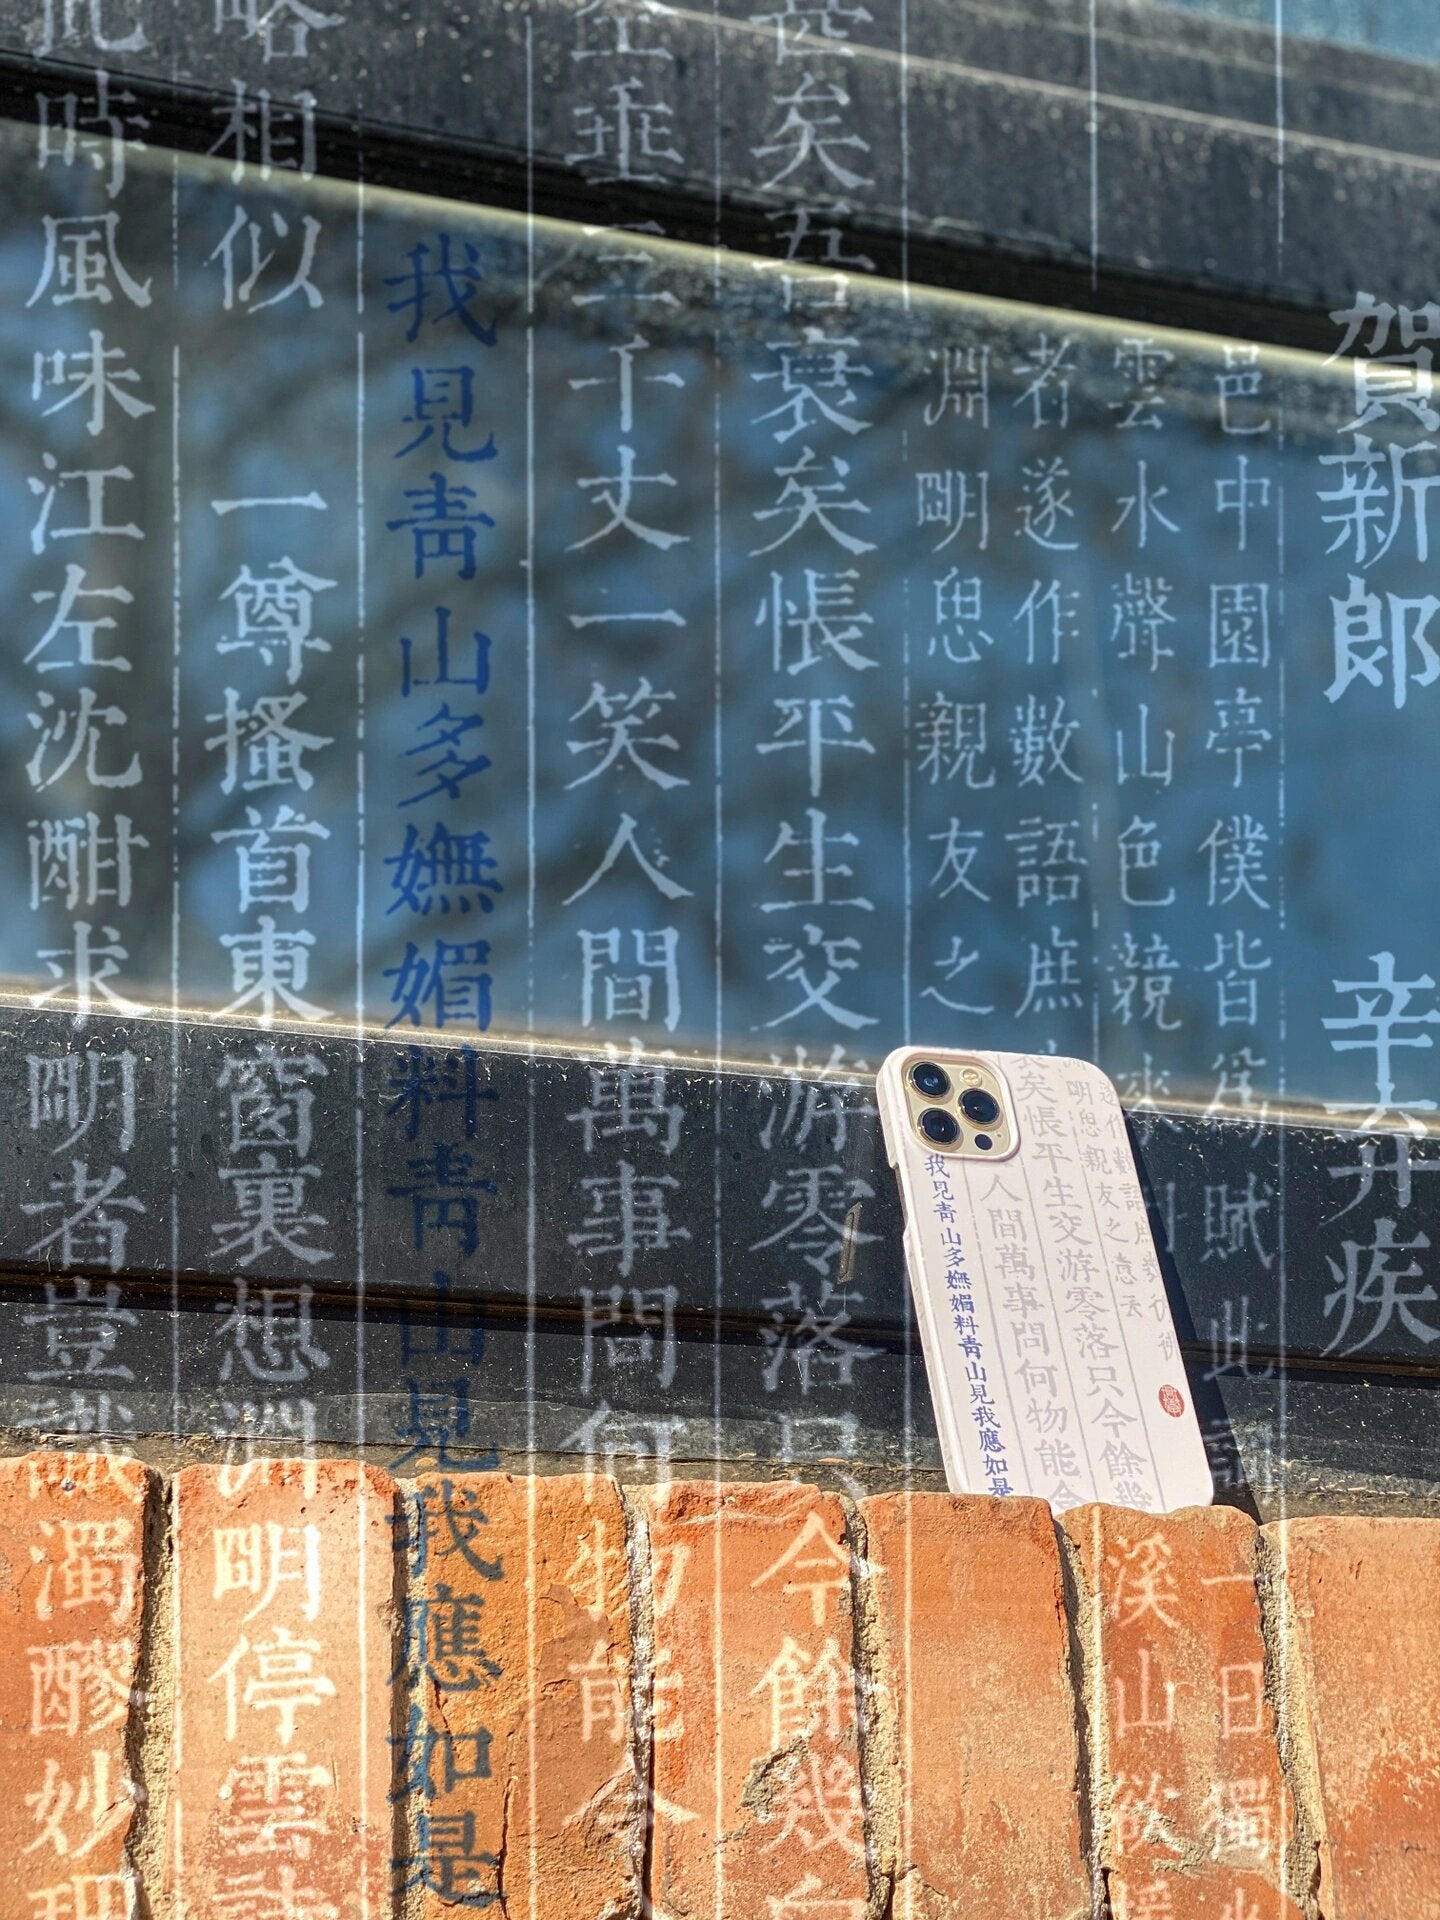 賀新郎 辛弃疾
邑中園亭僕皆爲賦此詞一日獨坐
雲水聲山色競來溪山欲援
者遂作數語庶
淵明思親友之
甚矣吾衰矣悵平生交游零落只今餘幾白
空垂三千丈一笑人間萬事問何物能令
我見靑山多嫵媚料靑山見我應如是
略相似 一尊搔首東窗裏想淵明停雲詩
此時風味江左沈酣求明者豈識濁醪妙理
彷彿
遂作數語庶幾
明思親友之意云
矣悵平生交游零落只今餘幾
人間萬事問何物能令
我見靑山多嫵媚料靑山見我應如是